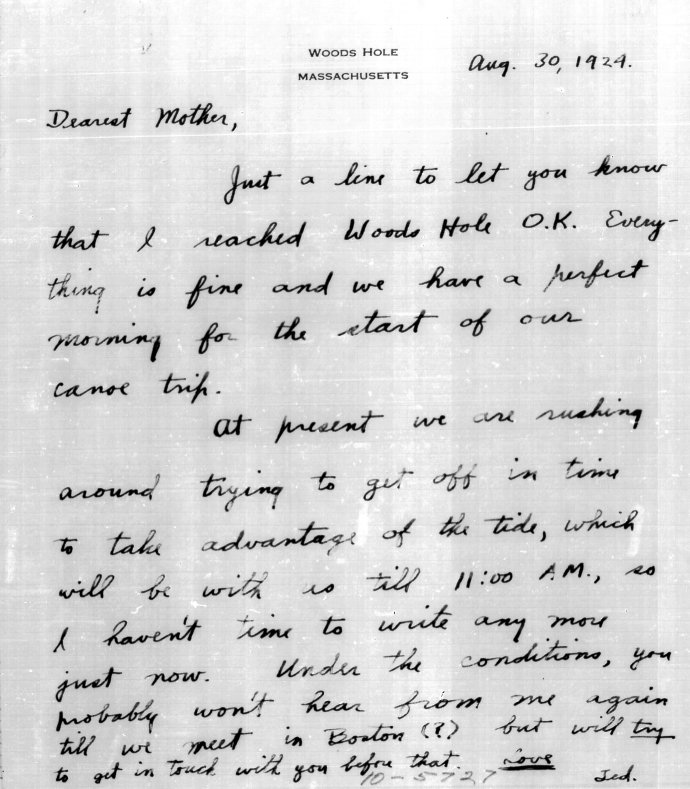 WOODS HOLE
MASSACHUSETTS
Aug. 30, 1924.
Dearest Mother,
Just a line to let you know
that I reached Woods Hole O.K. Every-
thing is fine and we have a perfect
morning for the start of our
canoe trip.
At present we are rushing
around trying to get off in time
to take advantage of the tide, which
will be with us till 11:00 A.M., so
I haven't time to write any more
just now. Under the conditions, you
probably won't hear from me again
till we meet in Boston (?) but will try
to get in touch with you before that. Love
10-5727
Ted.